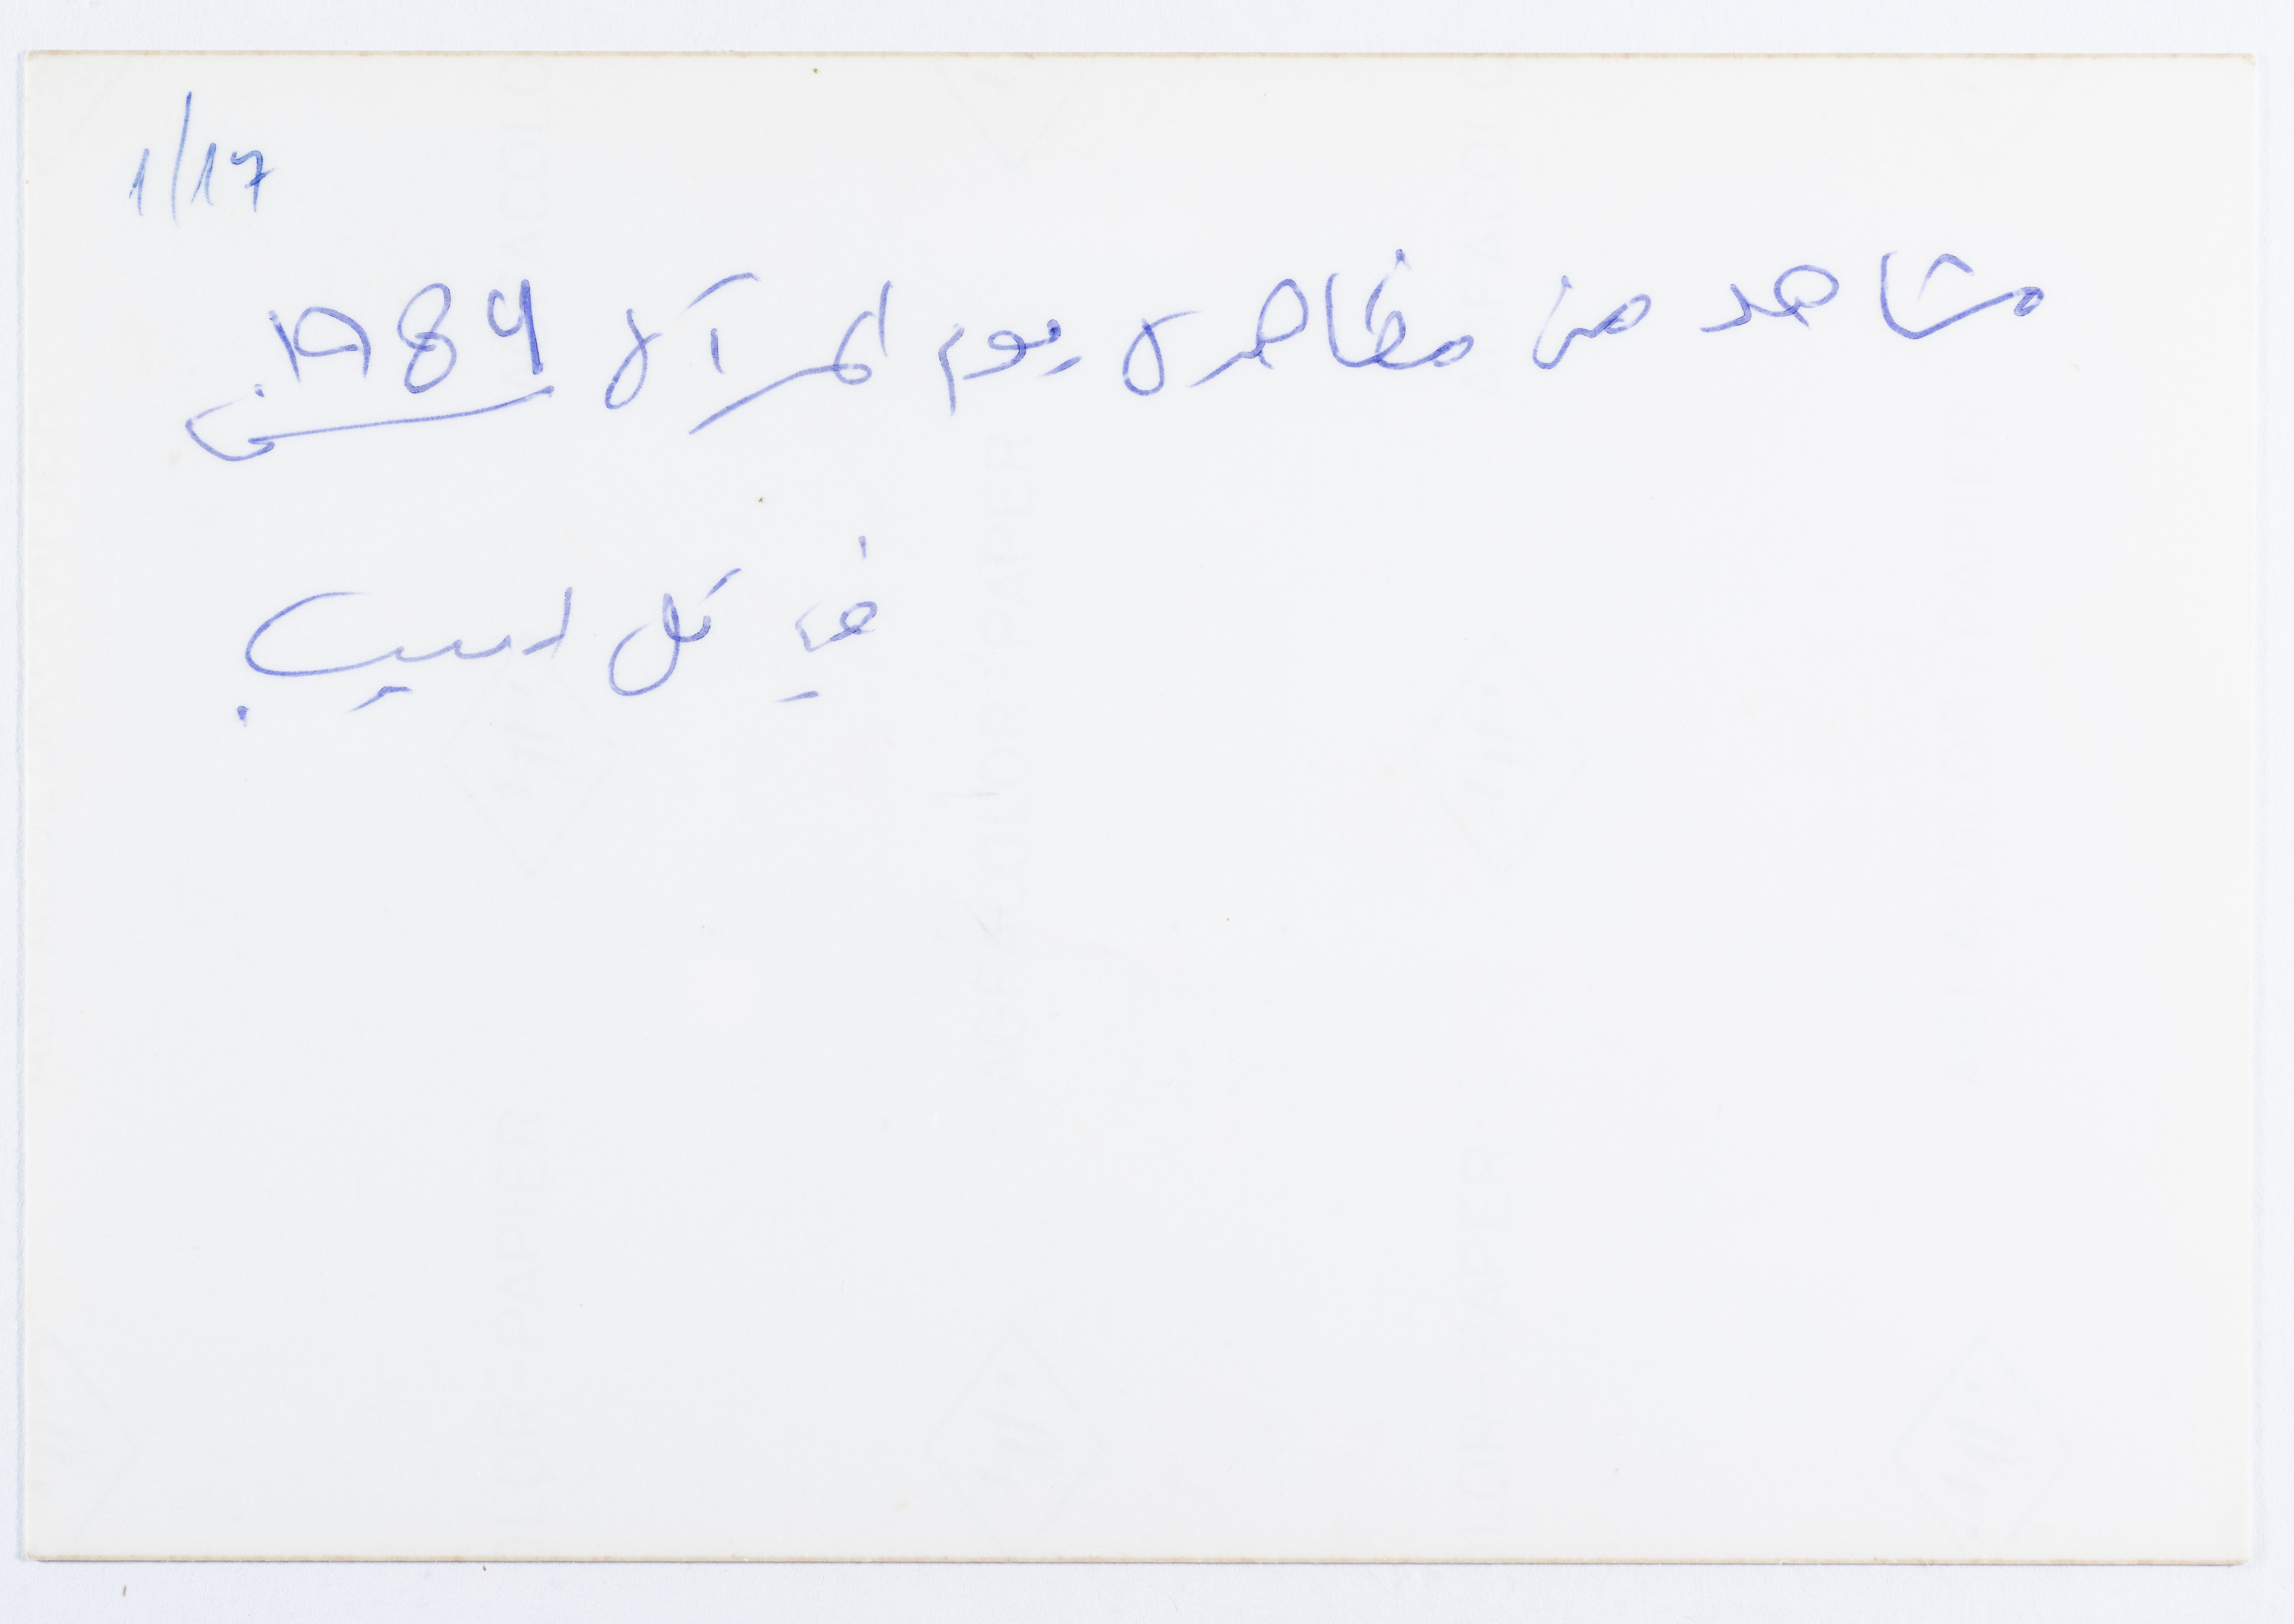 1/17
مشاهد من مظاهرة يوم المرآة 1989
في تل ابيب